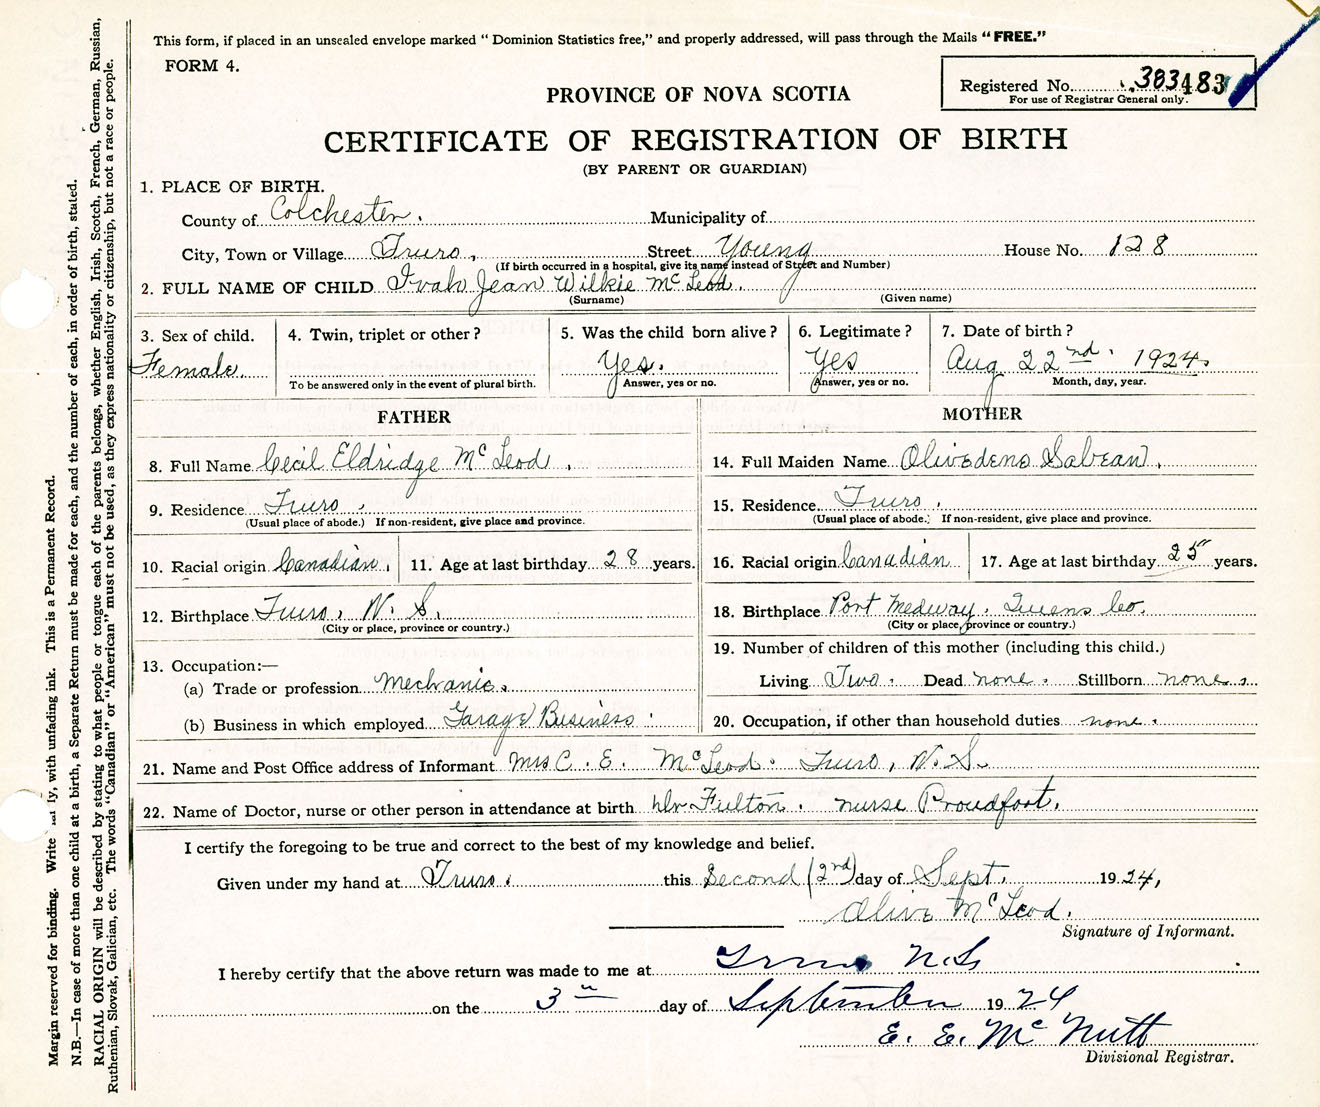 This form, if placed in an unsealed envelope marked “ Dominion Statistics free,” and properly addressed, will pass through the Mails “ FREE.”
FORM 4.
Registered No. 383483
For use of Registrar General only.
PROVINCE OF NOVA SCOTIA
CERTIFICATE OF REGISTRATION OF BIRTH
(BY PARENT OR GUARDIAN)
1. PLACE OF BIRTH.
County of Colchester. Municipality of
City, Town or Village Truro, Street Young House No. 128
(If birth occurred in a hospital, give its name instead of Street and Number)
2. FULL NAME OF CHILD Ivah Jean Wilkie McLeod.
(Surname) (Given name)
3. Sex of child. 4. Twin, triplet or other? 5. Was the child born alive? 6. Legitimate? 7. Date of birth?
Female. Yes. Yes Aug 22nd. 1924.
To be answered only in the event of plural birth. Answer, yes or no. Answer, yes or no. Month, day, year.
FATHER
8. Full Name Cecil Eldridge McLeod.
9. Residence Truro.
(Usual place of abode.) If non-resident, give place and province.
10. Racial origin Canadian. 11. Age at last birthday 28 years.
12. Birthplace Truro. N. S.
(City or place, province or country.)
13. Occupation:—
(a) Trade or profession Mechanic.
(b) Business in which employed Garage Business.
MOTHER
14. Full Maiden Name Olivedene Sabean.
15. Residence Truro.
(Usual place of abode. If non-resident, give place and province.
16. Racial origin Canadian 17. Age at last birthday 25 years.
18. Birthplace Port Medway. Queens Co.
(City or place, province or country.)
19. Number of children of this mother (including this child.)
Living Two. Dead none. Stillborn none.
20. Occupation, if other than household duties none.
21. Name and Post Office address of Informant Mrs C. E. McLeod. Truro, N. S.
22. Name of Doctor, nurse or other person in attendance at birth Dr. Fulton. nurse Proudfoot.
I certify the foregoing to be true and correct to the best of my knowledge and belief.
Given under my hand at Truro. this Second (2nd) day of Sept. 1924,
Olive McLeod.
Signature of Informant.
I hereby certify that the above return was made to me at Truro N.S.
on the 3rd day of September 1924
E. E. McNutt
Divisional Registrar.
Margin reserved for binding. Write with unfading ink. This is a Permanent Record.
N.B.—In case of more than one child at a birth, a Separate Return must be made for each, and the number of each, in order of birth, stated.
RACIAL ORIGIN will be described by stating to what people or tongue each of the parents belongs, whether English, Irish, Scotch, French, German, Russian,
Ruthenian, Slovak, Galician, etc. The words “Canadian” or “American” must not be used, as they express nationality or citizenship, but not a race or people.